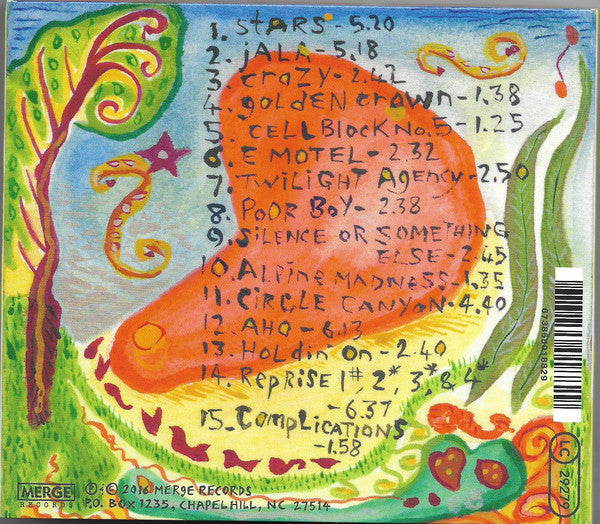 1. STARS - 5.20
2. jALA - 5.18
3. crazy - 2.42
4. golden crown - 1.38
5. CELL BLOCK No. 5 - 1.25
6. E MOTEL - 2.32
7. TWILIGHT Agency - 2.50
8. POOR BOY - 2.38
9. SILENCE OR SOMETHING
ELSE - 2.45
10. Alpine MADNESS - 1.35
11. CIRCLE CANYON - 4.40
12. AHO - 6.13
13. Holdin' on - 2.40
14. Reprise 1#, 2*, 3*, & 4*
- 6.37
15. Complications
- 1.58
MERGE
RECORDS
℗ & © 2016 MERGE RECORDS
P.O. BOX 1235, CHAPEL HILL, NC 27514
LC
29279